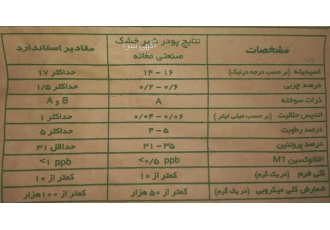 آگهی سرا
مشخصات نتایج پودر شیر خشک صنعتی مغانه مقادیر استاندارد
اسیدیته (بر حسب درجه درنیک) ۱۴ - ۱۶ حداکثر ۱۷
درصد چربی ۰/۲ - ۰/۶ حداکثر ۱/۵
ذرات سوخته A A و B
اندیس حلالیت (بر حسب میلی لیتر) ۰/۰۴ - ۰/۰۶ حداکثر ۱
درصد رطوبت ۴ - ۵ حداکثر ۵
درصد پروتئین ۳۱ - ۳۵ حداقل ۳۱
افلاتوکسین M1 <۰/۵ ppb <۱ ppb
کلی فرم (در یک گرم) کمتر از ۱۰ کمتر از ۱۰
شمارش کلی میکروبی (در یک گرم) کمتر از ۵۰ هزار کمتر از ۱۰۰هزار